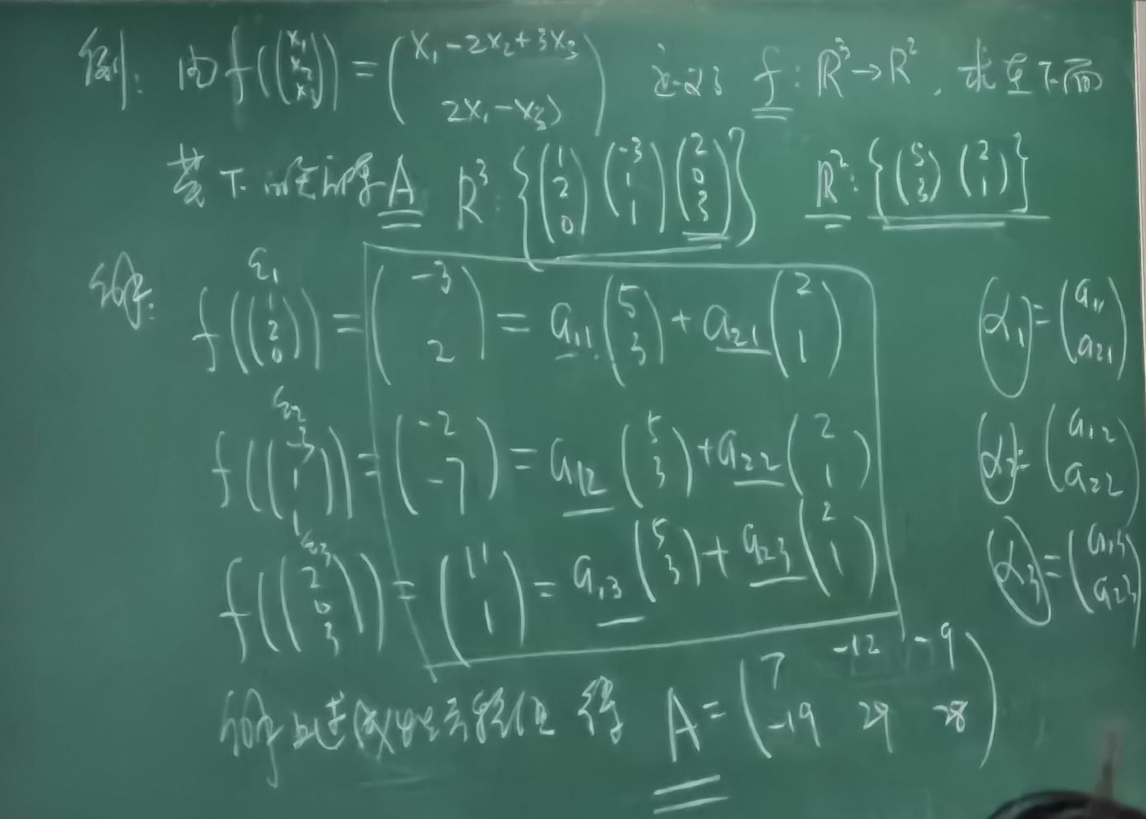 例: 由 f((x₁ x₂ x₃)) = (x₁-2x₂+3x₃ 2x₁-x₃) 定义了 f: R³→R², 求在下面
基下的矩阵 A R³: {(1 2 0) (-3 1 1) (2 0 3)} R²: {(5 3) (2 1)}
解: f((1 2 0)) = (-3 2) = a₁₁(5 3) + a₂₁(2 1) α₁ = (a₁₁ a₂₁)
ε₁
f((-3 1 1)) = (-2 -7) = a₁₂(5 3) + a₂₂(2 1) α₂ = (a₁₂ a₂₂)
ε₂
f((2 0 3)) = (11 1) = a₁₃(5 3) + a₂₃(2 1) α₃ = (a₁₃ a₂₃)
ε₃
解上述线性方程组 得 A = (7 -12 -9 -19 29 28)